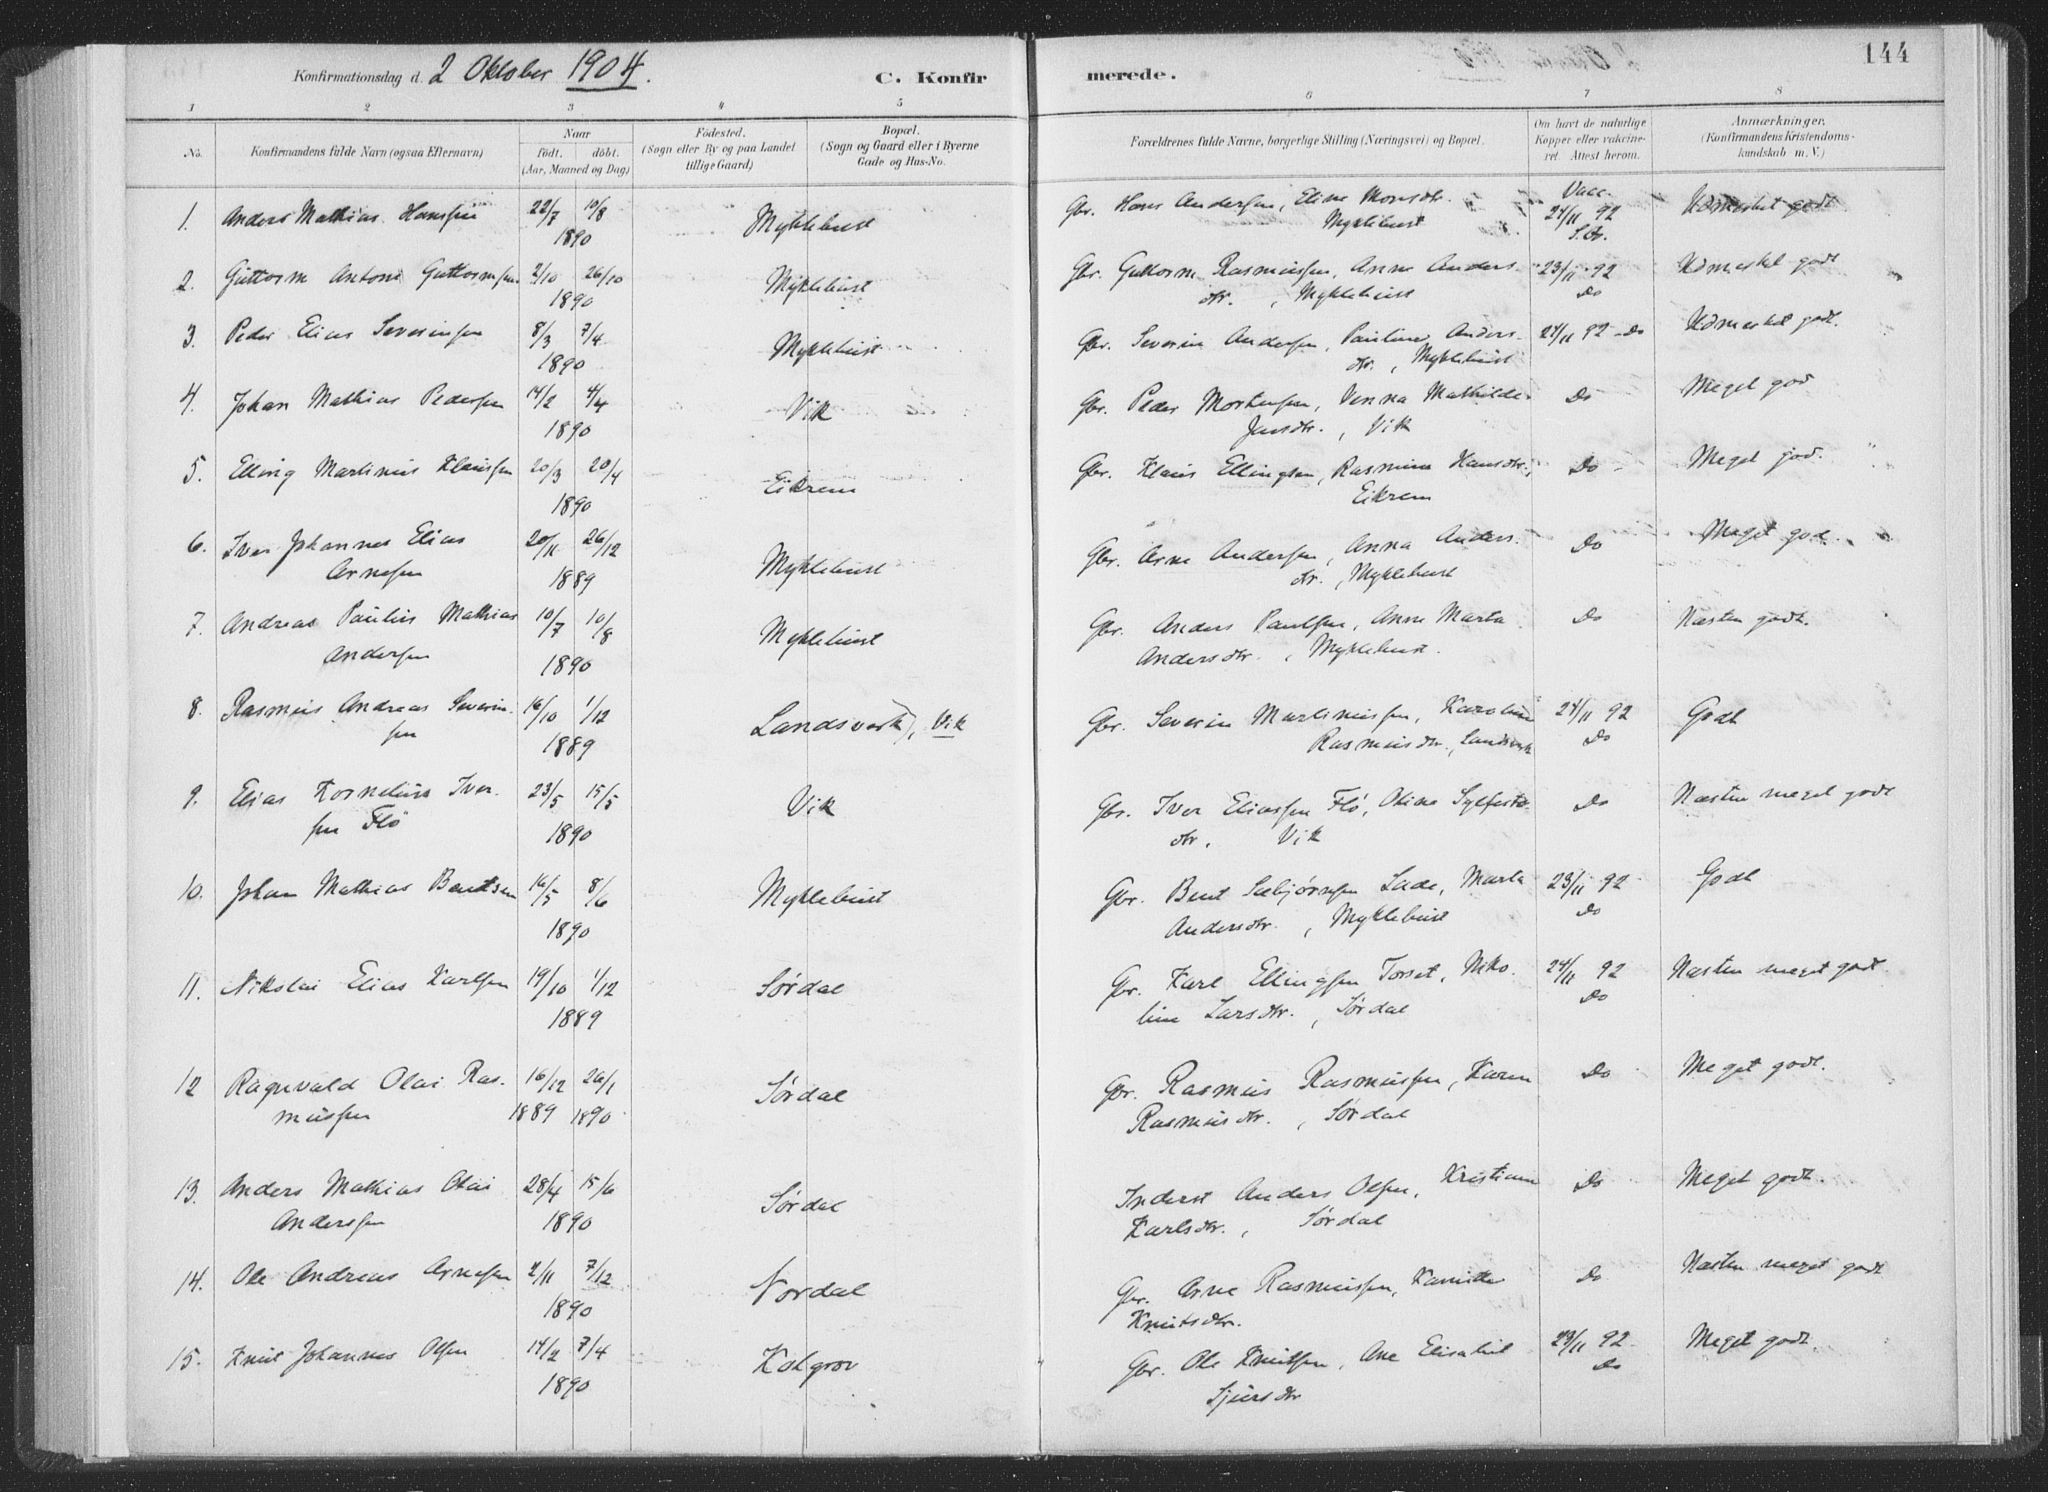 144
Konfirmationsdag d. 2 Oktober 1904. C. Konfirmerede.
1 2 3 4 5 6 7 8
No. Konfirmandens fulde Navn (ogsaa Efternavn) Naar födt. döbt. (Aar, Maaned og Dag) Födested. (Sogn eller By og paa Landet tillige Gaard) Bopæl. (Sogn og Gaard eller i Byerne Gade og Hus-No. Forældrenes fulde Navne, borgerlige Stilling (Næringsvei) og Bopæl. Om havt de naturlige Kopper eller vakcineret. Attest herom. Anmærkninger. (Konfirmandens Kristendomskundskab m. V.)
1. Anders Mathias Hanssen 22/7 10/8 Myklebust Gbr. Hans Andersen, Eline Monsdtr. Vacc. Udmerket godt
1890 Myklebust 24/11 92
2. Guttorm Antoni Guttormsen 2/10 26/10 Myklebust Gbr. Guttorm Rasmussen, Anne Anders- 23/11 92 Udmerket godt
1890 dtr., Myklebust Do
3. Peder Elias Severinsen 8/3 7/4 Myklebust Gbr. Severin Andersen, Pauline Anders- 24/11 92 Do Udmerket godt.
1890 dtr., Myklebust
4. Johan Mathias Pedersen 14/2 4/4 Vik Gbr. Peder Mortensen, Venna Mathilde Do Meget god
1890 Jensdtr., Vik
5. Elling Martinus Klaussen 20/3 20/4 Eikrem Gbr. Klaus Ellingsen, Rasmine Hansdtr. Do Meget god.
1890 Eikrem
6. Iver Johannes Elias 20/11 26/12 Myklebust Gbr. Arne Andersen, Anna Anders- Do Meget god.
Arnesen 1889 dtr., Myklebust
7. Andreas Paulus Mathias 10/7 10/8 Myklebust Gbr. Anders Paulsen, Anne Marta Do Næsten godt.
Andersen 1890 Andersdtr., Myklebust.
8. Rasmus Andreas Severin- 16/10 1/12 Landsverk), Vik Gbr. Severin Martinussen, Karoline 24/11 92 Godt
sen 1889 Rasmusdtr., Landsverk Do
9. Elias Kornelius Iver- 23/5 15/5 Vik Gbr. Iver Eliassen Flö, Oline Sylfest- Do Næsten meget godt
sen Flö 1890 dtr., Vik
10. Johan Mathias Bentsen 16/5 8/6 Myklebust Gbr. Bent Sæbjörnsen Lade, Marta 23/11 92 Godt
1890 Andersdtr., Myklebust Do
11. Nikolai Elias Karlsen 19/10 1/12 Sørdal Gbr. Karl Ellingsen Torset, Niko- 24/11 92 Næsten meget godt
1889 line Larsdtr., Sørdal Do
12 Ragnvald Olai Ras- 16/12 26/1 Sørdal Gbr. Rasmus Rasmussen, Karen Do Meget godt.
mussen 1889 1890 Rasmusdtr., Sørdal
13. Anders Mathias Olai 28/4 15/6 Sørdal Inderst Anders Olsen, Kristianne Do Meget godt.
Anderssen 1890 Karlsdtr., Sørdal
14. Ole Andreas Arnesen 2/11 7/12 Nordal Gbr. Arne Rasmussen, Kamilla Do Næsten meget godt
1890 Knutsdtr.
15. Knut Johannes Olsen 14/2 7/4 Kolgrov Gbr. Ole Knutsen, Ane Elisabet 23/11 92 Meget godt.
1890 Sjursdtr Do